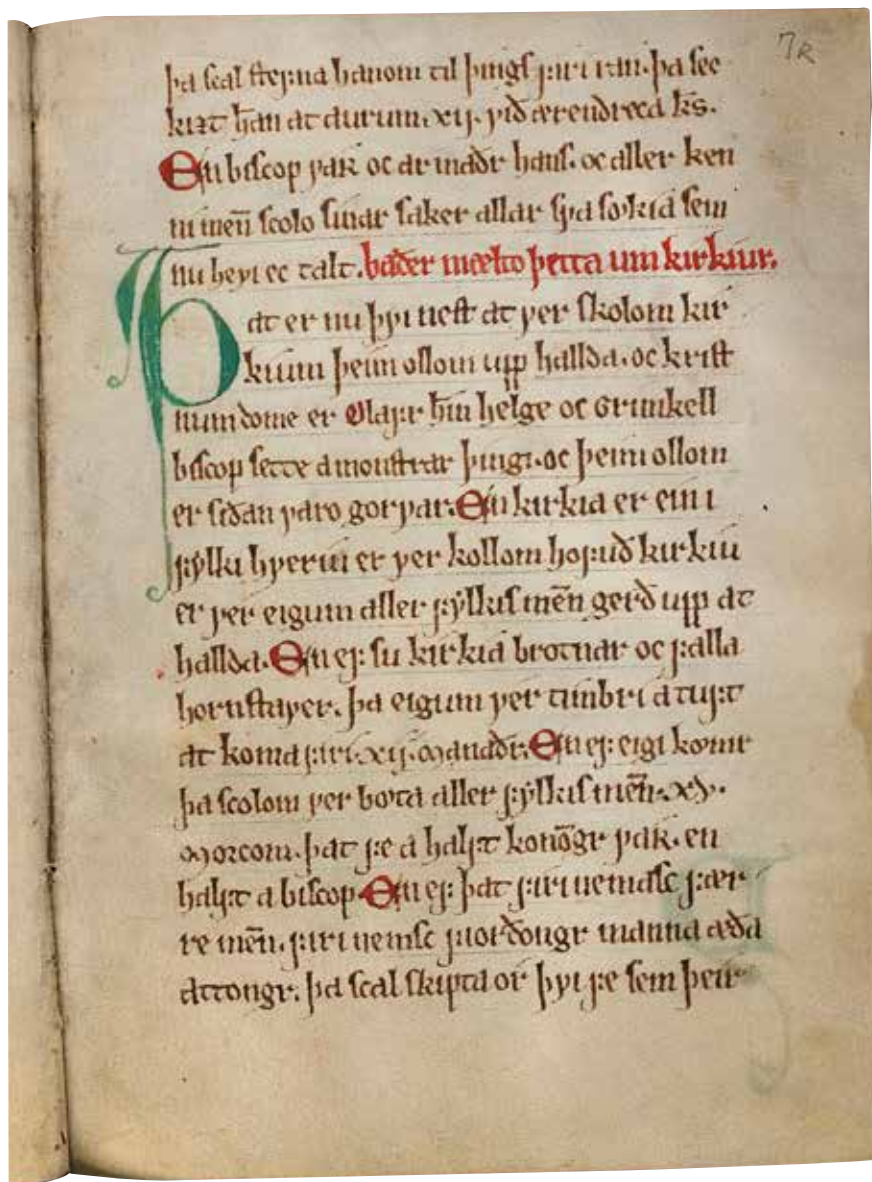 þa ſcal ſteꝼna hanom til þingſ ꝼiri ran. þa ſec
kizt h̅an at aurum .xij. ƿið ærendreca ks̅.
En biſcop ƿaʀ oc armaðr hanſ. oc aller ken
ni men̅ ſcolo ſinar ſaker allar ſƿa ſokia ſem
nu heƿi ec talt. baðer mælto þetta um kirkiur.
Þat er nu þƿi neſt at ƿer ſkolom kir
kium þeim ollom upp hallda. oc kriſt
num dome er Olaꝼr h̅in helge oc Grimkell
biſcop ſette a monſtrar þingi. oc þeim ollom
er ſiðan ƿaro gorƿar. En kirkia er ein i
ꝼylki hƿeriu er ƿer kollom hoꝼuð kirkiu
er ƿer eigum aller ꝼylkiſmen̅ gerð upp at
hallda. En eꝼ ſu kirkia brotnar oc ꝼalla
hornſtaƿer. þa eigum ƿer timbri a tuꝼt
at koma ꝼiri .xij. manaðr. En eꝼ eigi komr
þa ſcolom ƿer bota aller ꝼylkiſmen̅ .xv.
morcom. þat ꝼe a halꝼt kono̅gr ƿaʀ. en
halꝼt a biſcop. En eꝼ þat ꝼiri nemaſc ꝼær
re men̅. ꝼiri nemſc ꝼiorðongr manna æða
attongr. þa ſcal ſkipta or þƿi ꝼe ſem þeir
7R